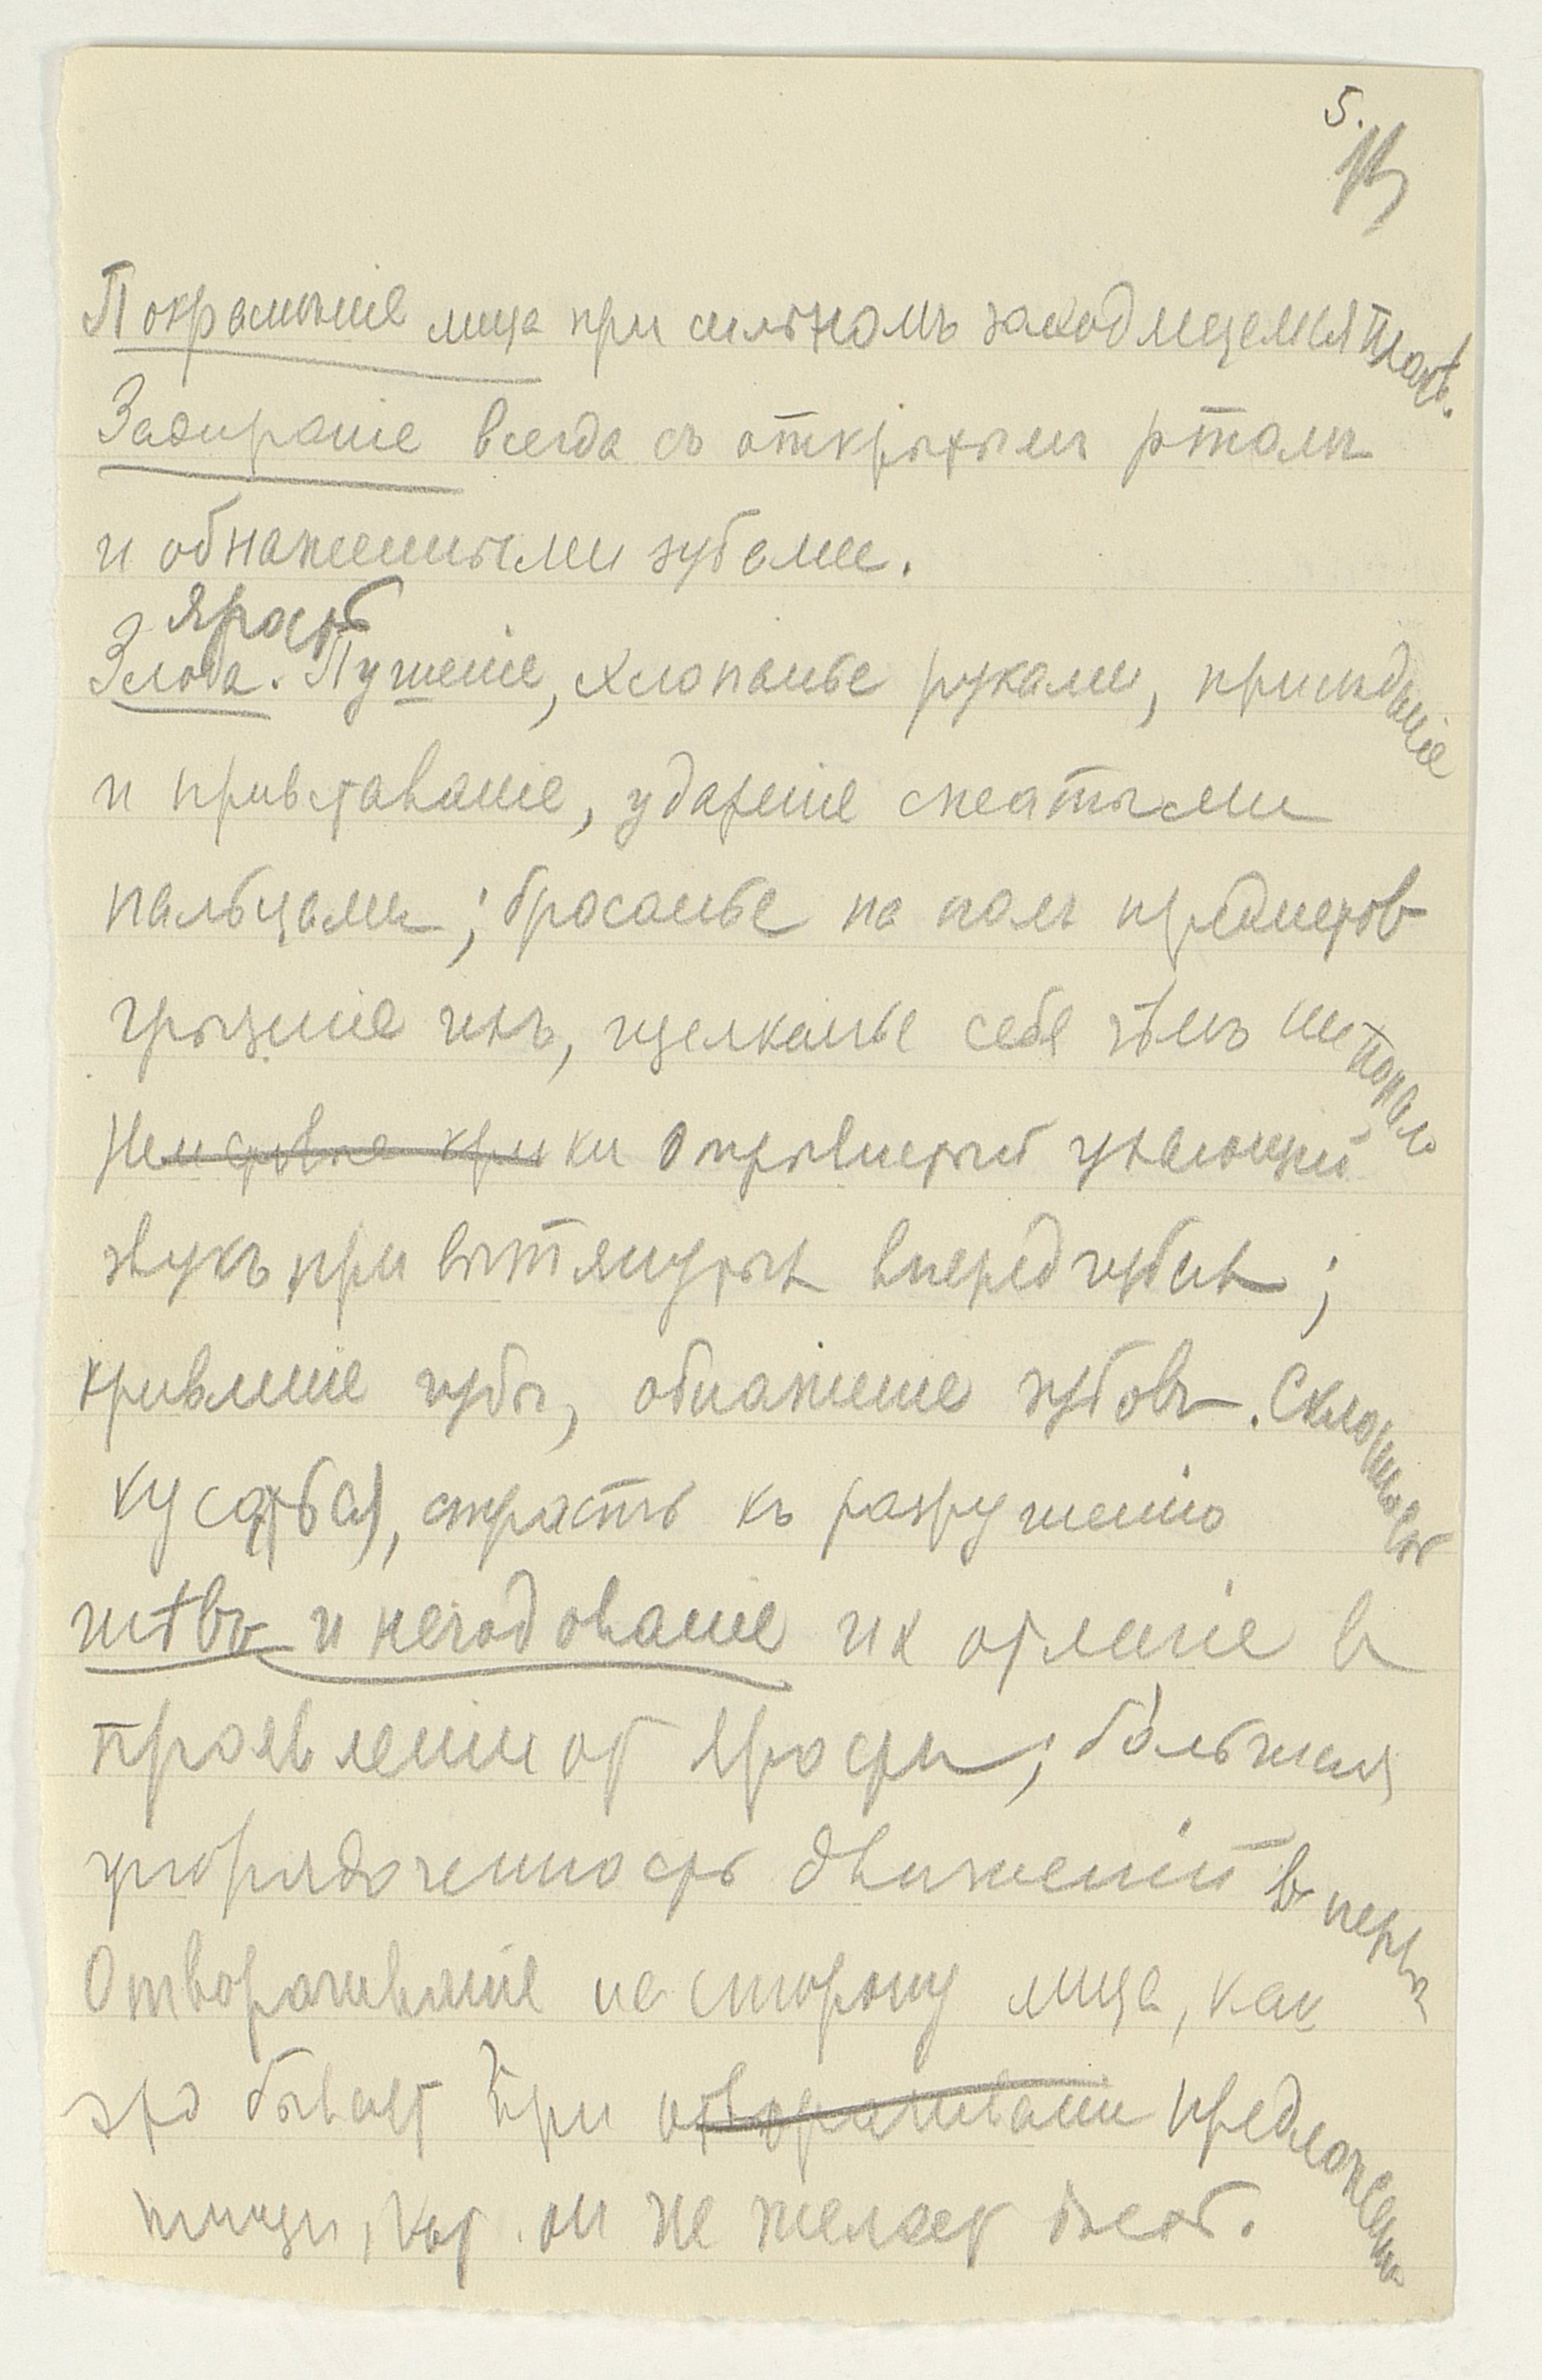 5.
Покраснѣніе лица при сильномъ заходящемся плачѣ.
Задираніе всегда съ открытымъ ртомъ
и обнаженными зубами.
Ярость
Злоба. Пушеніе, хлопанье руками, присѣданіе
и привставаніе, удареніе сжатыми
пальцами; бросанье на полъ предметов
грызеніе ихъ, щелканье себя чѣмъ ни попало
Неистовые крики Отрывистый ухающій
звукъ при вытянутых вперед губах;
кривленіе губы, обнаженіе зубовъ. Склонность
кусать(ся), страсть къ разрушенію
гнѣвъ и негодованіе их отличіе в
проявленіи от ярости; бóльшая
упорядоченность движеній в первы
Отворачиваніе на сторону лица, как
это бывает при отворачиваніи предложенн
пищи, кот. он не желает ѣсть.